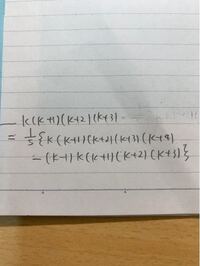 k(k+1)(k+2)(k+3)
= 1/5 {k(k+1)(k+2)(k+3)(k+4)
- (k-1)k(k+1)(k+2)(k+3)}